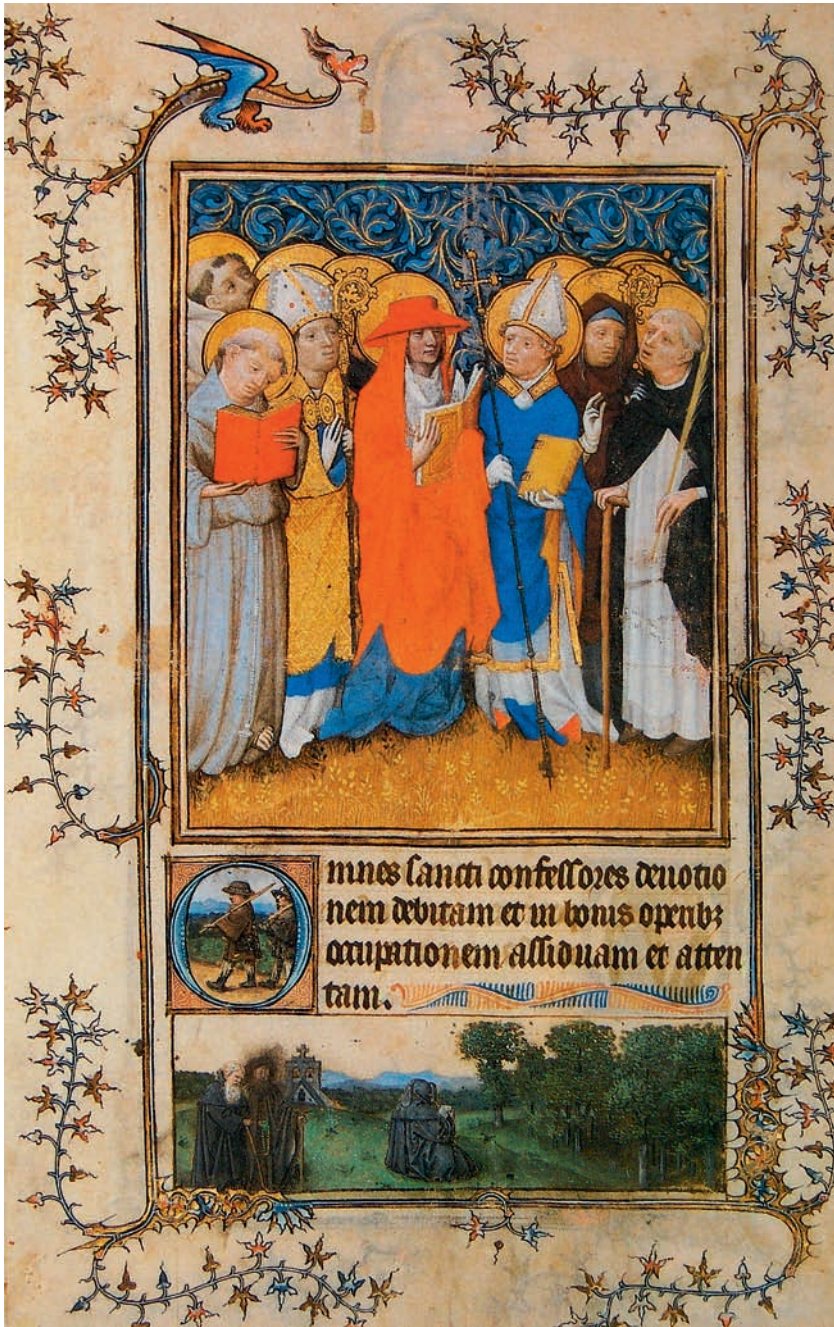 Omnes sancti confessores deuotio
nem debitam et in bonis operibꝫ
occupationem assiduam et atten
tam.